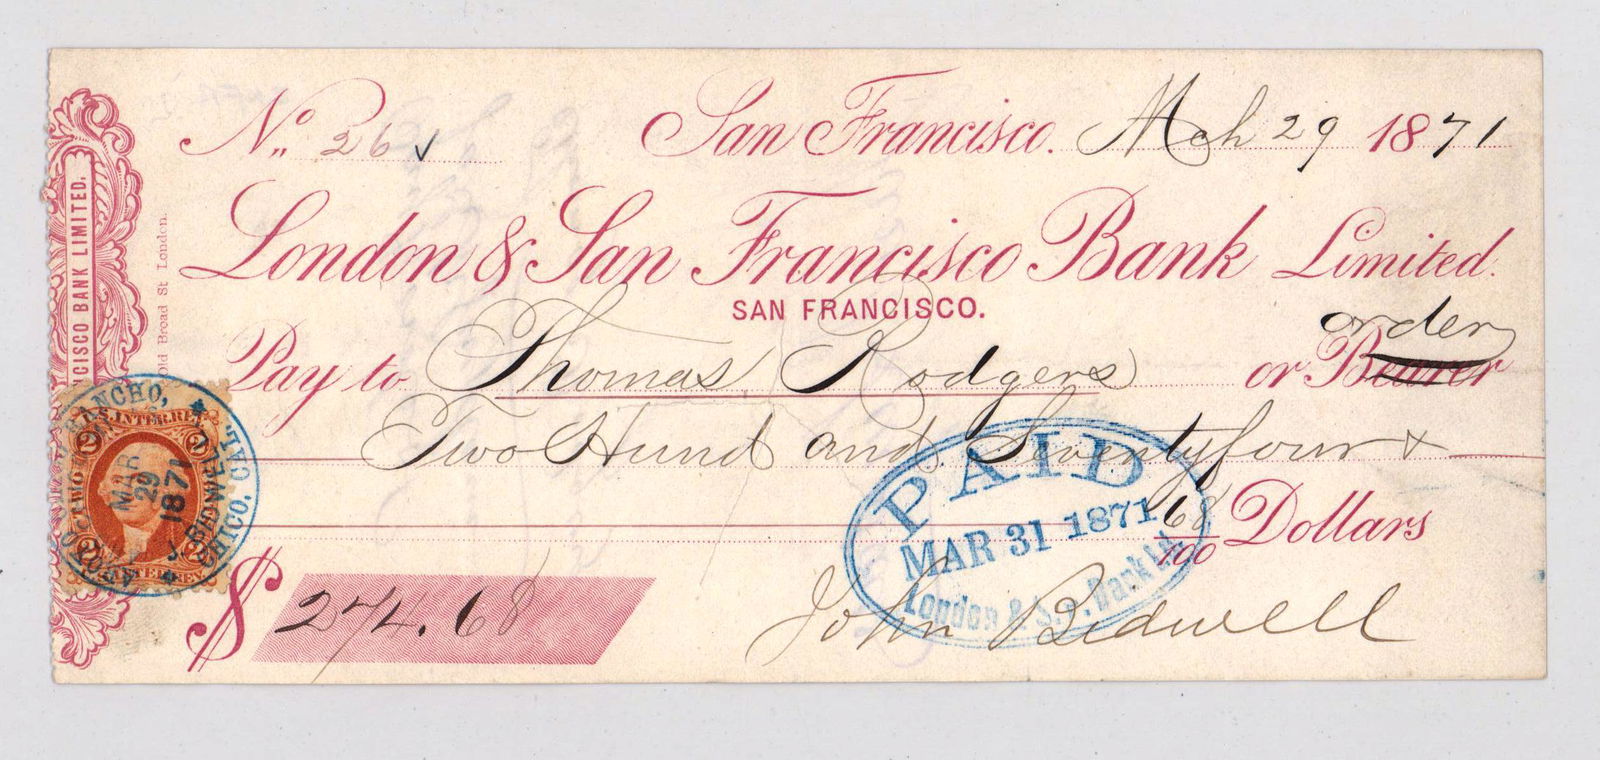 No. 26 San Francisco. Mch 29 1871
London & San Francisco Bank Limited.
SAN FRANCISCO.
Pay to Thomas Rodgers or Bearer order
Two Hund and Seventyfour &
68/100 Dollars
$ 274.68
John Bidwell
PAID
MAR 31 1871
London & S.F. Bank Ld.
NCISCO BANK LIMITED.
Old Broad St London.
U.S. INTER. REV.
2 2
2 2
RANCHO, CHICO, CAL.
J. BIDWELL
MAR
29
1871